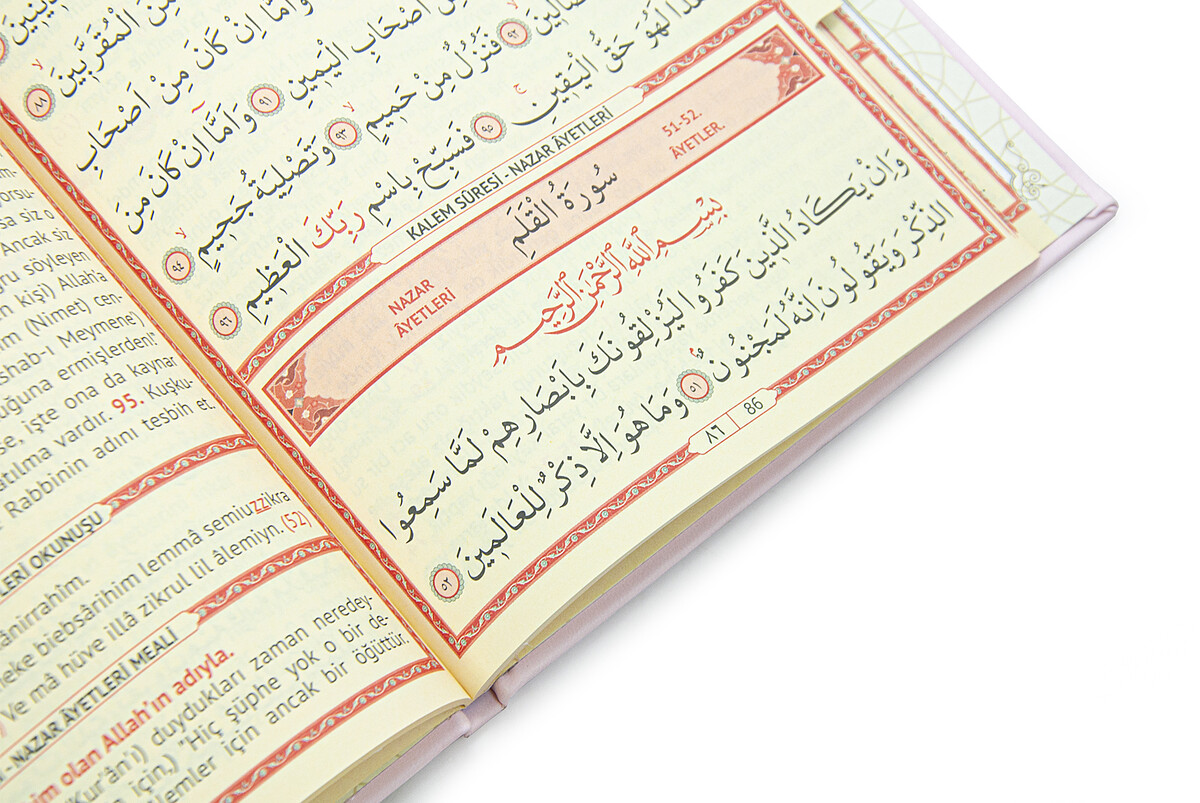 وَاَمَّٓا اِنْ كَانَ مِنَ الْمُقَرَّبٖينَ ﴿٨٨﴾
مِنْ اَصْحَابِ الْيَمٖينِ ﴿٩١﴾ وَاَمَّٓا اِنْ كَانَ مِنْ اَصْحَابِ
ضَّالّٖينَ ﴿٩٢﴾ فَنُزُلٌ مِنْ حَمٖيمٍ ﴿٩٣﴾ وَتَصْلِيَةُ جَحٖيمٍ ﴿٩٤﴾
لَهُوَ حَقُّ الْيَقٖينِ ﴿٩٥﴾ فَسَبِّحْ بِاسْمِ رَبِّكَ الْعَظٖيمِ ﴿٩٦﴾
KALEM SÛRESİ - NAZAR ÂYETLERİ
51-52. ÂYETLER.
سُورَةُ الْقَلَمِ
NAZAR ÂYETLERİ
بِسْمِ اللّٰهِ الرَّحْمٰنِ الرَّحٖيمِ
وَاِنْ يَكَادُ الَّذٖينَ كَفَرُوا لَيُزْلِقُونَكَ بِاَبْصَارِهِمْ لَمَّا سَمِعُوا
الذِّكْرَ وَيَقُولُونَ اِنَّهُ لَمَجْنُونٌ ﴿٥١﴾ وَمَا هُوَ اِلَّا ذِكْرٌ لِلْعَالَمٖينَ ﴿٥٢﴾
٨٦ | 86
sa siz o
Ancak siz
söyleyen
kişi) Allah'a
(Nimet) cen-
shab-ı Meymene)
ğuna ermişlerden!
se, işte ona da kaynar
atılma vardır. 95. Kuşku-
Rabbinin adını tesbih et.
LERİ OKUNUŞU
ânirrahîm.
neke biebsârihim lemmâ semiuzzikra
Ve mâ hüve illâ zikrul lil âlemiyn. (52)
- NAZAR ÂYETLERİ MEALİ
im olan Allah'ın adıyla.
(Kur'ân'ı) duydukları zaman neredey-
için,) "Hiç şüphe yok o bir de-
âlemler için ancak bir öğüttür.